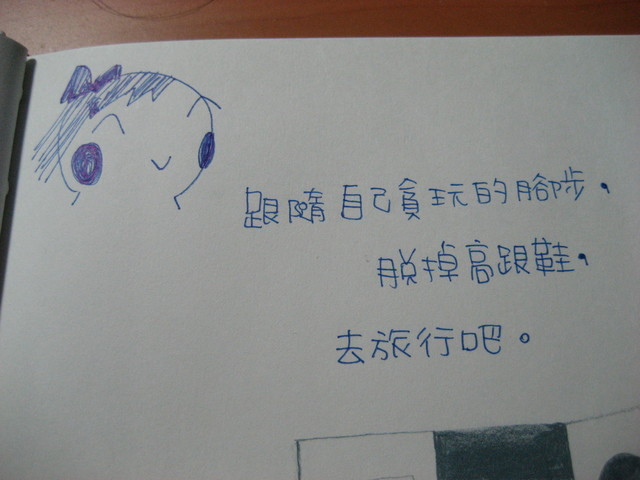 跟隨自己貪玩的腳步，
脫掉高跟鞋，
去旅行吧。